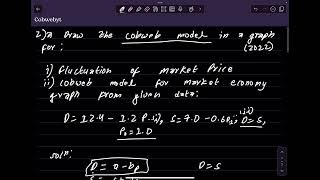 Cobwebys
2)a Draw the cobweb model in a graph
for: (2022)
i) fluctuation of market Price
ii) cobweb model for market economy
graph from given data:
D = 12.4 - 1.2 P
D = S,
P₀ = 1.0
solⁿ:
D = a - bp D = S